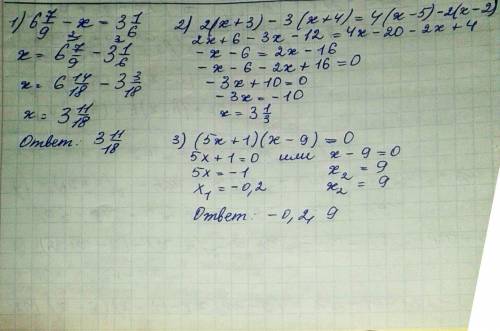 1) 6 7/9 - x = 3 1/6
x = 6 7/9 - 3 1/6
x = 6 14/18 - 3 3/18
x = 3 11/18
Ответ: 3 11/18
2) 2(x+3) - 3(x+4) = 4(x-5) - 2(x-2)
2x+6 - 3x - 12 = 4x - 20 - 2x + 4
-x - 6 = 2x - 16
-x - 6 - 2x + 16 = 0
-3x + 10 = 0
-3x = -10
x = 3 1/3
3) (5x+1)(x-9) = 0
5x+1 = 0 или x - 9 = 0
5x = -1 x₂ = 9
x₁ = -0,2 x₂ = 9
Ответ: -0,2, 9